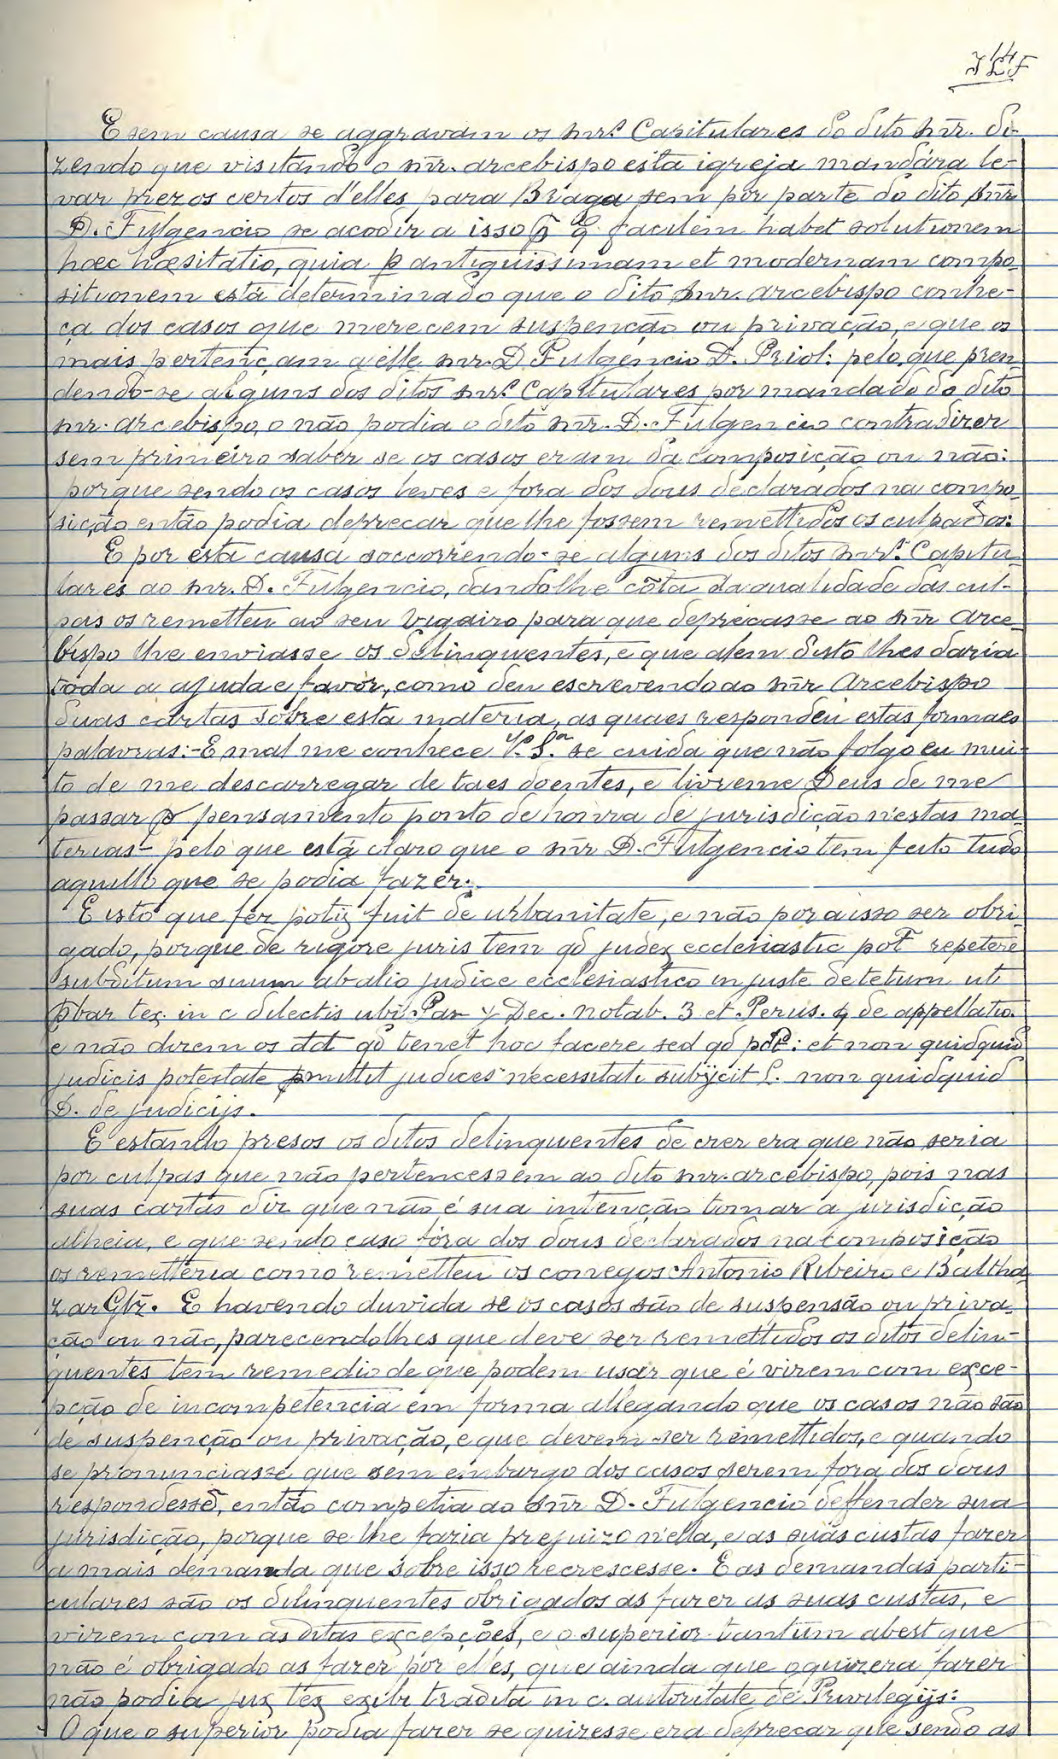 14
E sem causa se aggravam os snr.es Capitulares do dito snr. di-
zendo que visitando o snr. arcebispo esta igreja mandára le-
var prezos certos d'elles para Braga sem por parte do dito snr
D. Fulgencio se acodir a isso facilem habet solutionem
hæc hæsitatio, quia p antiquissimam et modernam compo-
sitionem está determinado que o dito snr. arcebispo conhe-
ça dos casos que merecem suspenção ou privação, e que os
mais pertençam a elle snr. D. Fulgencio D. Priol: pelo que pren-
dendo-se alguns dos ditos snr.es Capitulares por mandado do dito
snr. arcebispo, o não podia o dito snr. D. Fulgencio contradizer
sem primeiro saber se os casos eram da composição ou não:
porque sendo os casos leves e fora dos dous declarados na compo-
sição então podia deprecar que lhe fossem remettidos os culpados:
E por esta causa soccorrendo-se alguns dos ditos snr.es Capitu-
lares ao snr. D. Fulgencio, dandolhe cõta da qualidade das cul-
pas os remetteu ao seu Vigairo para que deprecasse ao snr Arce-
bispo lhe enviasse os delinquentes, e que alem disto lhes daria
toda a ajuda e favor, como deu escrevendo ao snr Arcebispo
duas cartas sobre esta materia, as quaes respondeu estas formaes
palavras:-E mal me conhece V. S.a se cuida que não folgo eu mui-
to de me descarregar de taes doentes, e livreme Deus de me
passar p pensamento ponto de honra de jurisdição n'estas ma-
terias- pelo que está claro que o snr D. Fulgencio tem feito tudo
aquillo que se podia fazer:
E isto que fez potiz fuit de urbanitate, e não por a isso ser obri-
gado, porque de rigore juris tem qd judex ecclesiastic pot repetere
subditum suum ab alio judice ecclesiastico injuste detetum uti
pbar tex. in c dilectis ubi Pan y Dec. notab. 3 et Perus. 4 de appellatio.
e não dizem os dd qd tenet hoc facere sed qd pot: et non quidquid
judicis potestate pmittit judices necessitati subijcit l. non quidquid
D. de judicijs.
E estando presos os ditos delinquentes de crer era que não seria
por culpas que não pertencessem ao dito snr. arcebispo, pois nas
suas cartas diz que não é sua intenção tomar a jurisdição
alheia, e que sendo caso fóra dos dous declarados na composição
os remetteria como remetteu os conegos Antonio Ribeiro e Baltha-
zar Glz. E havendo duvida se os casos são de suspensão ou priva-
ção ou não, parecendolhes que deve ser remettidos os ditos delin-
quentes tem remedio de que podem usar que é virem com exce-
pção de incompetencia em forma allegando que os casos não são
de suspenção ou privação, e que devem ser remettidos, e quando
se pronunciasse que sem embargo dos casos serem fora dos dous
respondessẽ, então competia ao snr D. Fulgencio deffender sua
jurisdição, porque se lhe faria prejuizo n'ella, e as suas custas fazer
a mais demanda que sobre isso recrescesse. E as demandas parti-
culares são os delinquentes obrigados as fazer as suas custas, e
virem com as ditas excepções, e o superior tantum abest que
não é obrigado as fazer por elles, que ainda que o quizera fazer
não podia jux tex tradita in c. autoritate de Privilegijs:
O que o superior podia fazer se quizesse era deprecar que sendo as